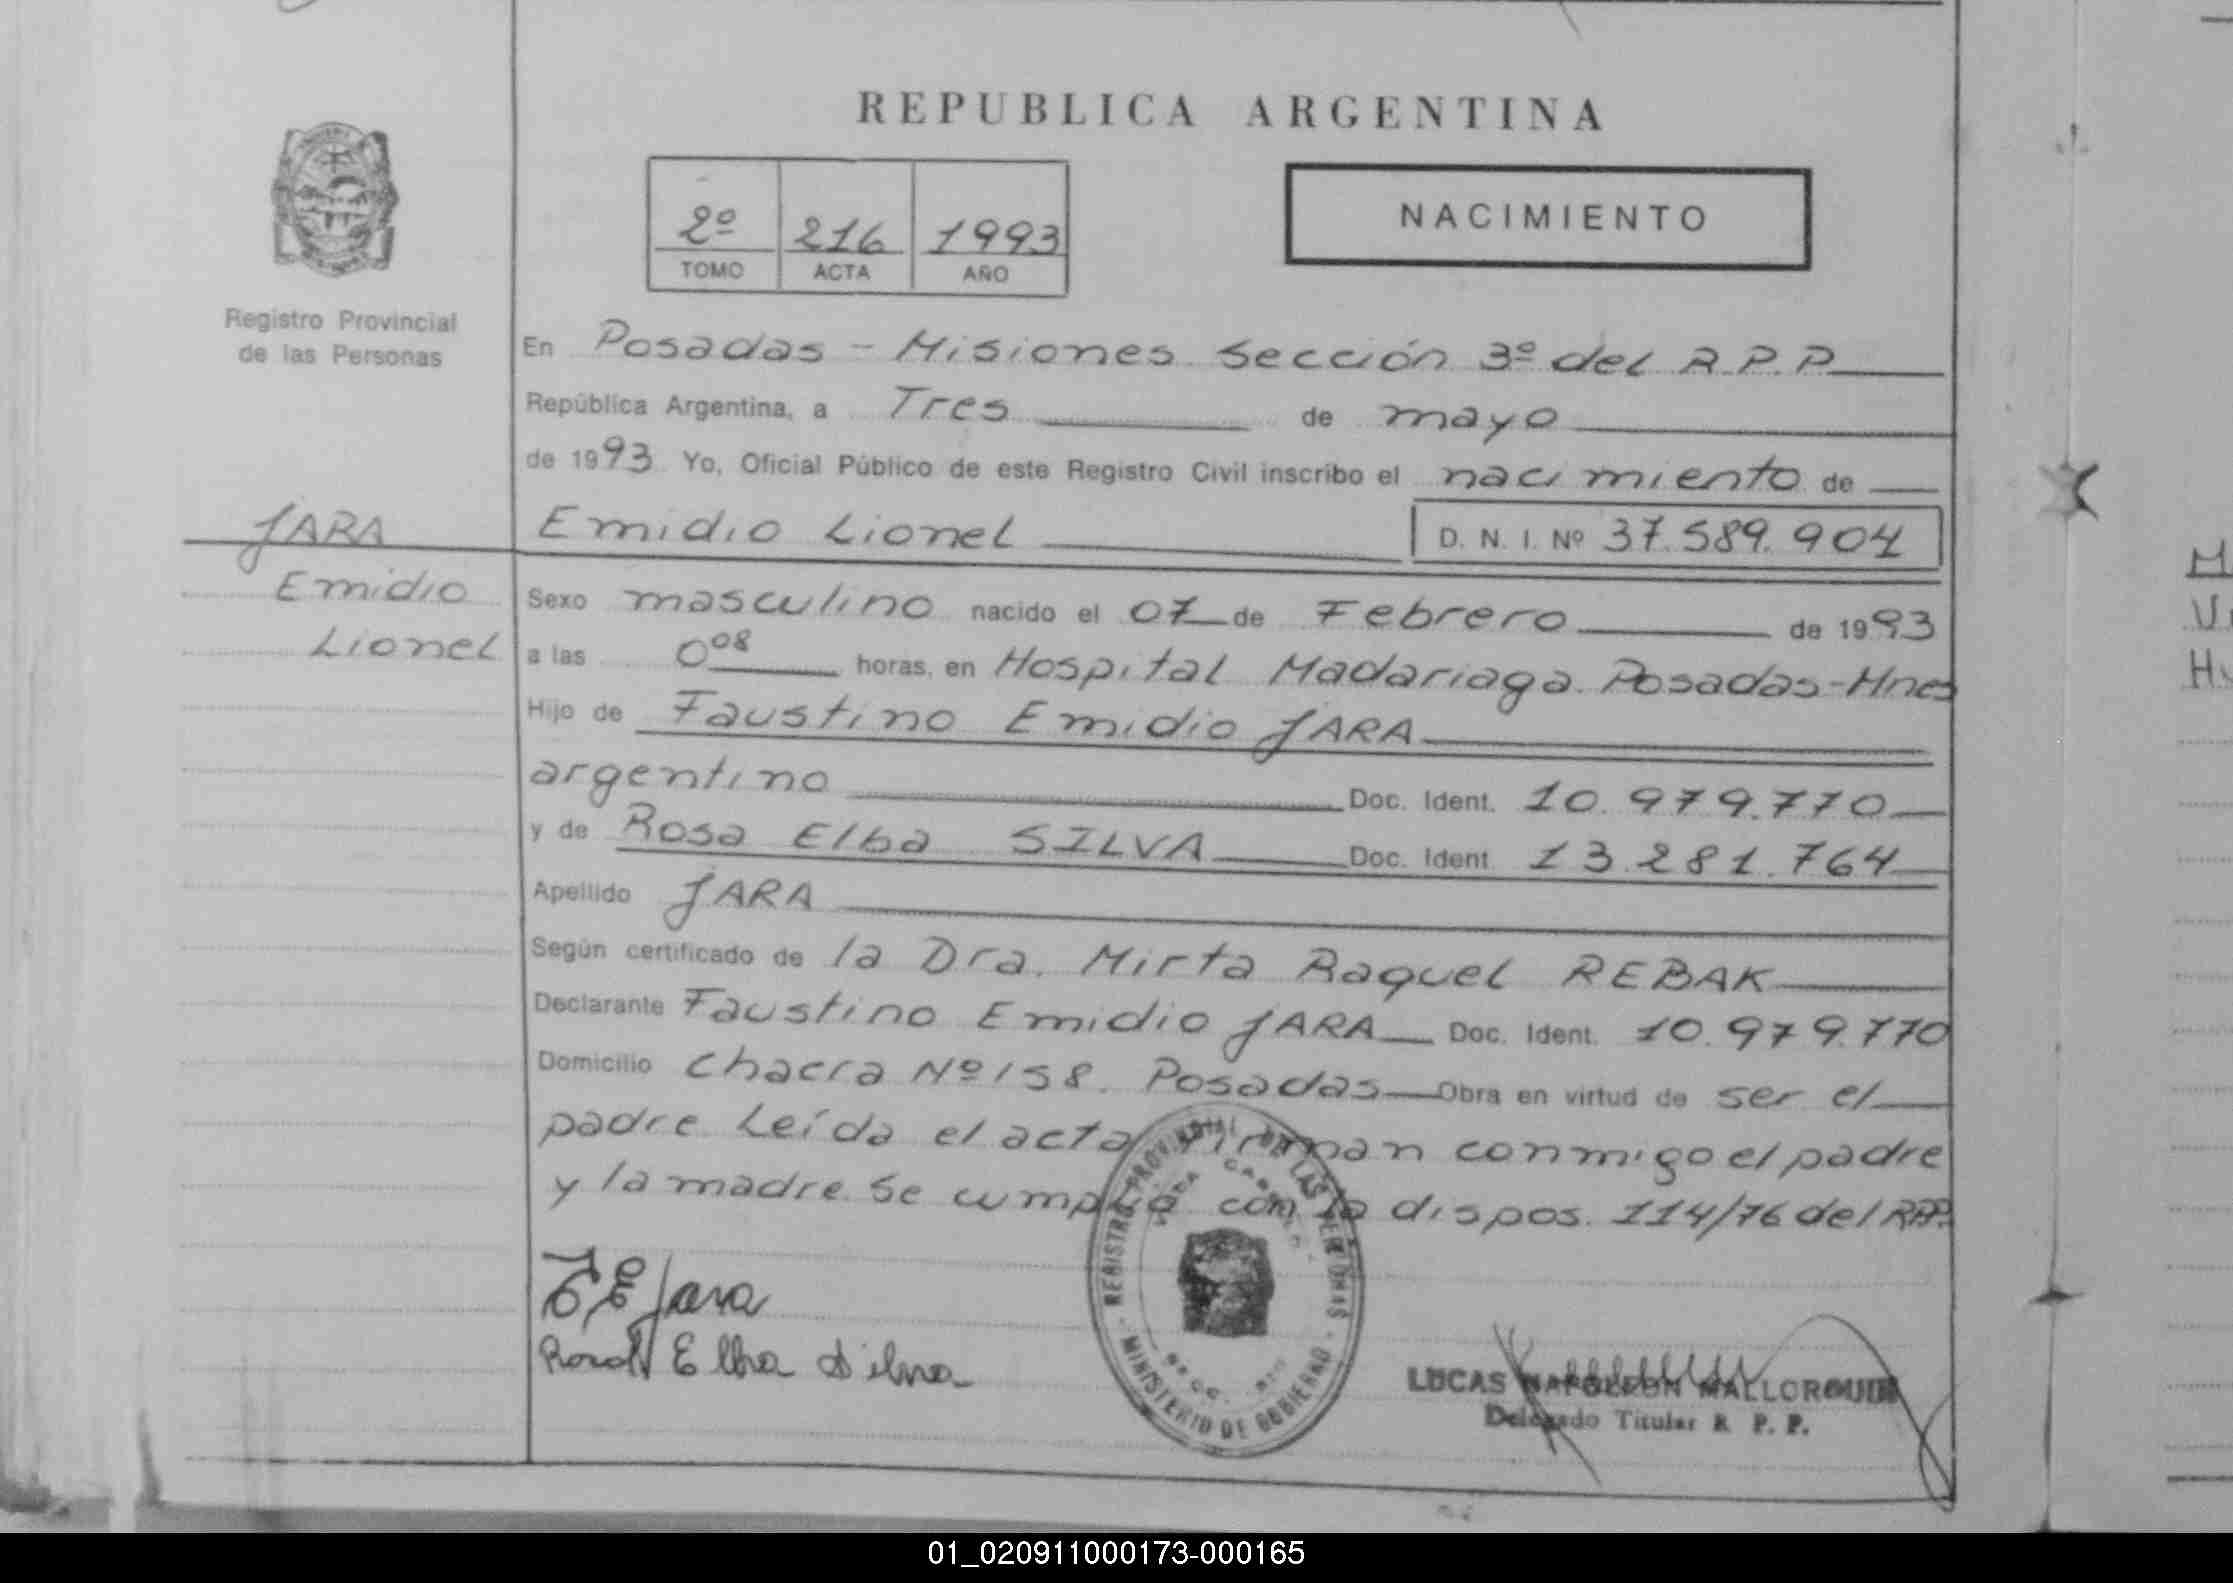 REPUBLICA ARGENTINA
2º 216 1993
TOMO ACTA AÑO
NACIMIENTO
Registro Provincial
de las Personas
En Posadas - Misiones Sección 3º del R.P.P
República Argentina, a Tres de mayo
de 1993 Yo, Oficial Público de este Registro Civil inscribo el nacimiento de
Emidio Lionel D. N. I. Nº 37.589.904
JARA
Emidio
Lionel
Sexo masculino nacido el 07 de Febrero de 1993
a las 0 08 horas, en Hospital Madariaga. Posadas-Mnes
Hijo de Faustino Emidio JARA
argentino Doc. Ident. 10.979.770
y de Rosa Elba SILVA Doc. Ident. 13.281.764
Apellido JARA
Según certificado de la Dra. Mirta Raquel REBAK
Declarante Faustino Emidio JARA Doc. Ident. 10.979.770
Domicilio Chacra Nº 158. Posadas Obra en virtud de ser el
padre. Leída el acta firman conmigo el padre
y la madre. Se cumplió con la dispos. 114/76 del RPP.
F E Jara
Rosa Elba Silva
REGISTRO PROVINCIAL DE LAS PERSONAS
- MINISTERIO DE GOBIERNO -
LUCAS NAPOLEON MALLORQUIN
Delegado Titular R. P. P.
01_020911000173-000165